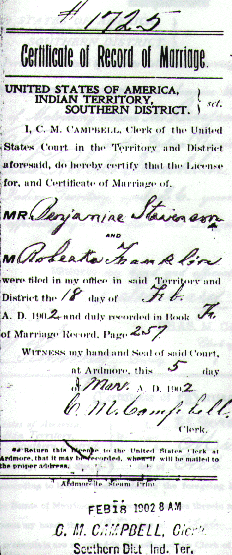 # 1725
Certificate of Record of Marriage.
UNITED STATES OF AMERICA,
INDIAN TERRITORY, } sct.
SOUTHERN DISTRICT.
I, C. M. CAMPBELL, Clerk of the United
States Court in the Territory and District
aforesaid, do hereby certify that the License
for, and Certificate of Marriage of.
MR. Benjamine Stevenson
AND
M Robeatta Franklin
were filed in my office in said Territory and
District the 18 day of Feb.
A. D. 1902 and duly recorded in Book
of Marriage Record, Page 257
WITNESS my hand and Seal of said Court,
at Ardmore, this 5 day
of Mar. A. D. 1902
C. M. Campbell.
Clerk.
Return this License to the United States Clerk at
Ardmore, that it may be recorded, when it will be mailed to
the proper address.
Ardmoreite Steam Print
FEB 18 1902 8 AM
C. M. CAMPBELL, Clerk
Southern Dist. Ind. Ter.